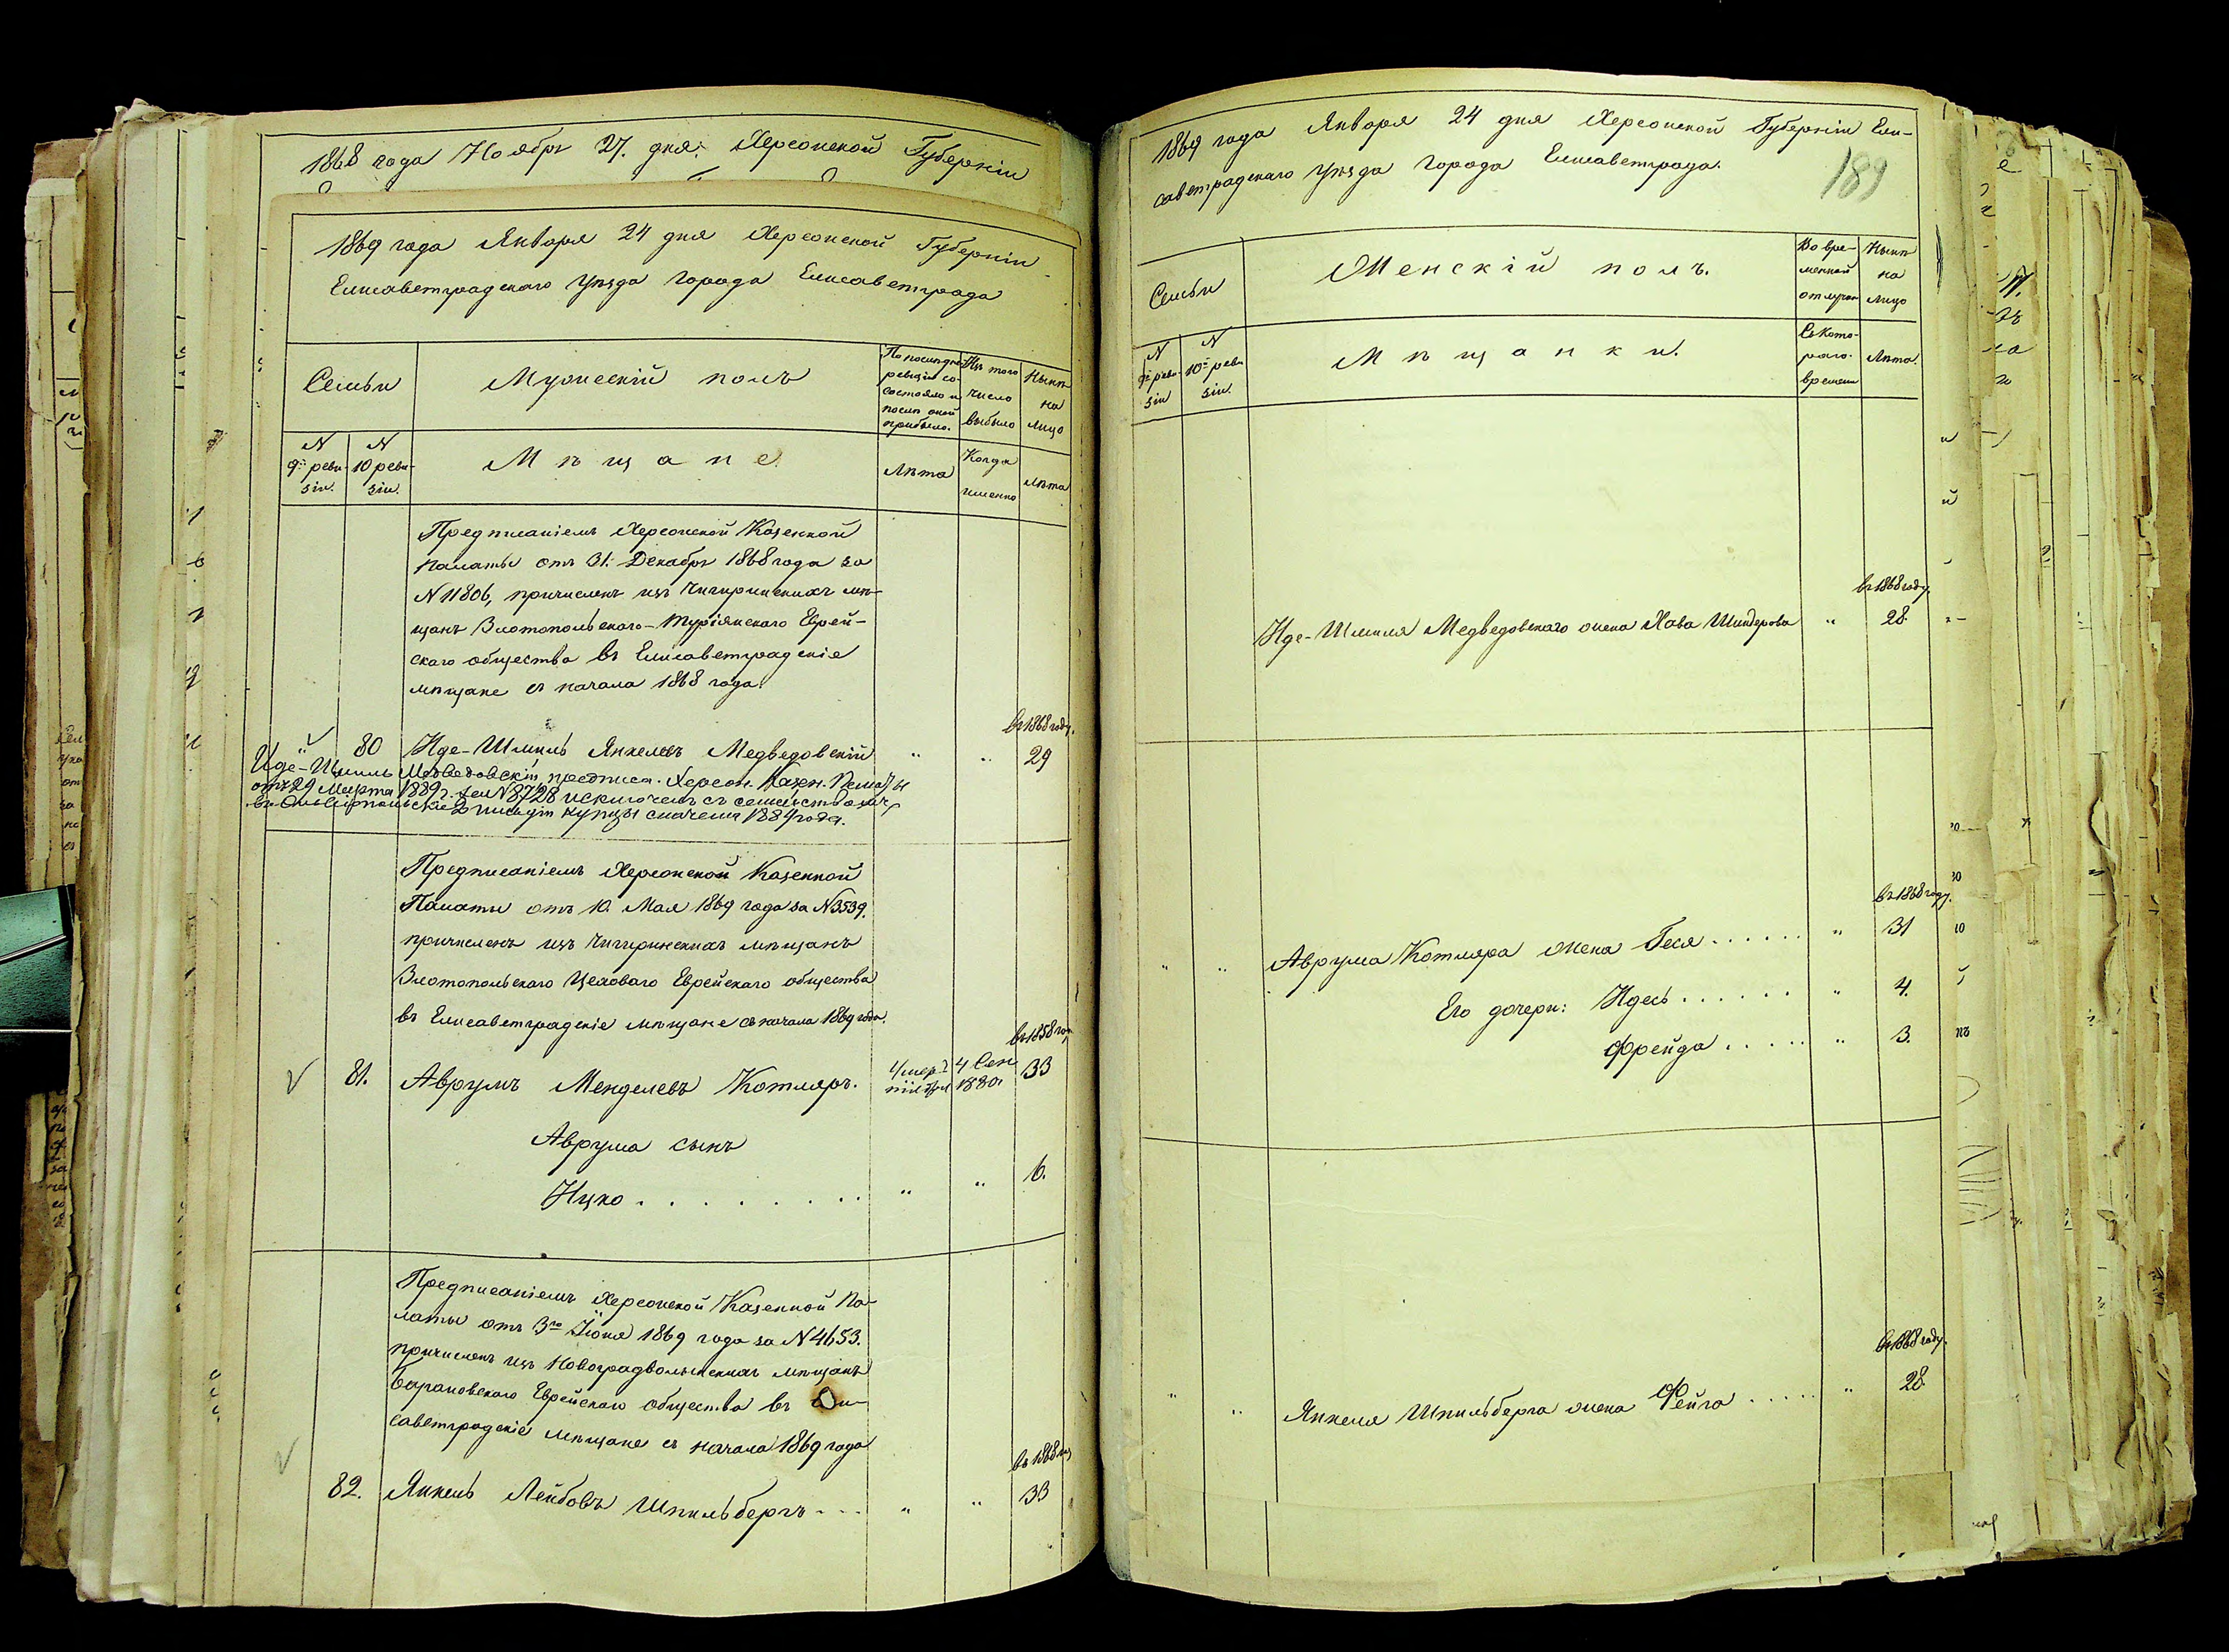 1868 года Ноябрь 27. дня. Херсонской Губерніи
1869 года Января 24 дня Херсонской Губерніи
Елисаветградскаго Уѣзда Города Елисаветграда
Семьи
Мужескій полъ
По послѣдней
ревизіи со-
состояло и
послѣ оной
прибыло.
Изъ того
число
выбыло
Нынѣ
на
лицо
N
9й реви-
зіи.
N
10 реви-
зіи.
Мѣщане.
Лѣта
Когда
именно
Лѣта
Предписаніемъ Херсонской Казенной
Палаты отъ 31. Декабря 1868 года за
N 11806, причисленъ изъ Чигиринскихъ мѣ-
щанъ Златопольскаго-Туріянскаго Еврей-
скаго общества въ Елисаветградскіе
мѣщане съ начала 1868 года.
въ 1868 году.
" 80 Иде-Шмиль Янкелевъ Медведовскій " " 29
Иде-Шмиль Медведовскій, предписа. Херсон. Казен. Палаты
отъ 29 Марта 1889 г. за N 8728 исключенъ съ семействомъ
въ Ольвиопольскіе 2 гильдіи купцы съ начала 1889 года.
Предписаніемъ Херсонской Казенной
Палаты отъ 10. Мая 1869 года за N 3539.
причисленъ изъ Чигиринскихъ мѣщанъ
Златопольскаго Цеховаго Еврейскаго общества
въ Елисаветградскіе мѣщане съ начала 1869 года.
въ 1858 год
81. Аврумъ Менделевъ Котляръ. 4 Сен 1880. 33
Аврума сынъ
Ицко . . . . . . . . . " " 6.
Предписаніемъ Херсонской Казенной Па-
латы отъ 3го Іюня 1869 года за N 4653.
причисленъ изъ Новоградволынскихъ мѣщанъ
Барановскаго Еврейскаго общества въ Ели-
саветградскіе мѣщане съ начала 1869 года
въ 1868 го
82. Янкель Лейбовъ Шпильбергъ . . . " " 33
1869 года Января 24 дня Херсонской Губерніи Ели-
саветградскаго Уѣзда Города Елисаветграда.
189
Семьи
Женскій полъ.
Во вре-
менной
отлучкѣ
Нынѣ
на
лицо
N
9й реви-
зіи
N
10й реви-
зіи.
Мѣщанки.
Съ кото-
раго
времени
Лѣта.
въ 1868 году.
Иде-Шмиля Медведовскаго жена Хава Шиндерова " 28.
въ 1868 году.
" " Аврума Котляра жена Геся . . . . . . " 31
Его дочери: Идесь . . . . . . " 4.
Фрейда . . . . . " 3.
въ 1868 году.
" " Янкеля Шпильберга жена Фейга . . . . . " 28.